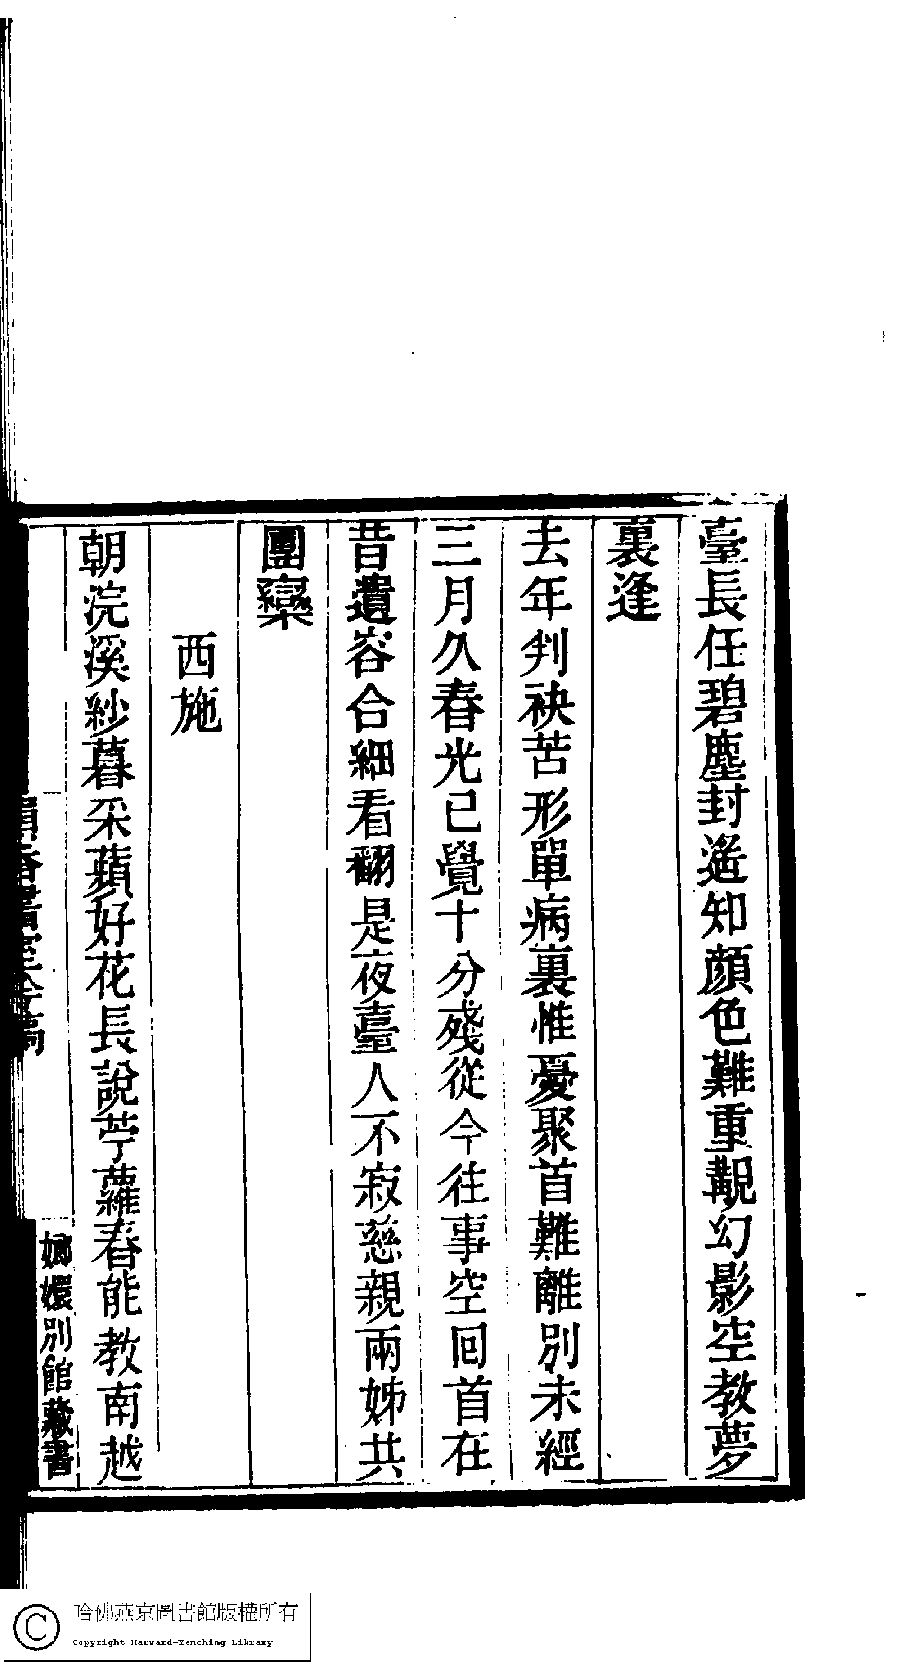 臺長任碧塵封遙知顏色難重覩幻影空教夢
裏逢
去年判袂苦形單病裏惟憂聚首難離別未經
三月久春光已覺十分殘從今往事空回首在
昔遺容合細看翻是夜臺人不寂慈親兩姊共
團欒
西施
朝浣溪紗暮采蘋好花長說苧蘿春能教南越
嫏嬛別館藏書
哈佛燕京圖書館版權所有
Copyright Harvard-Yenching Library